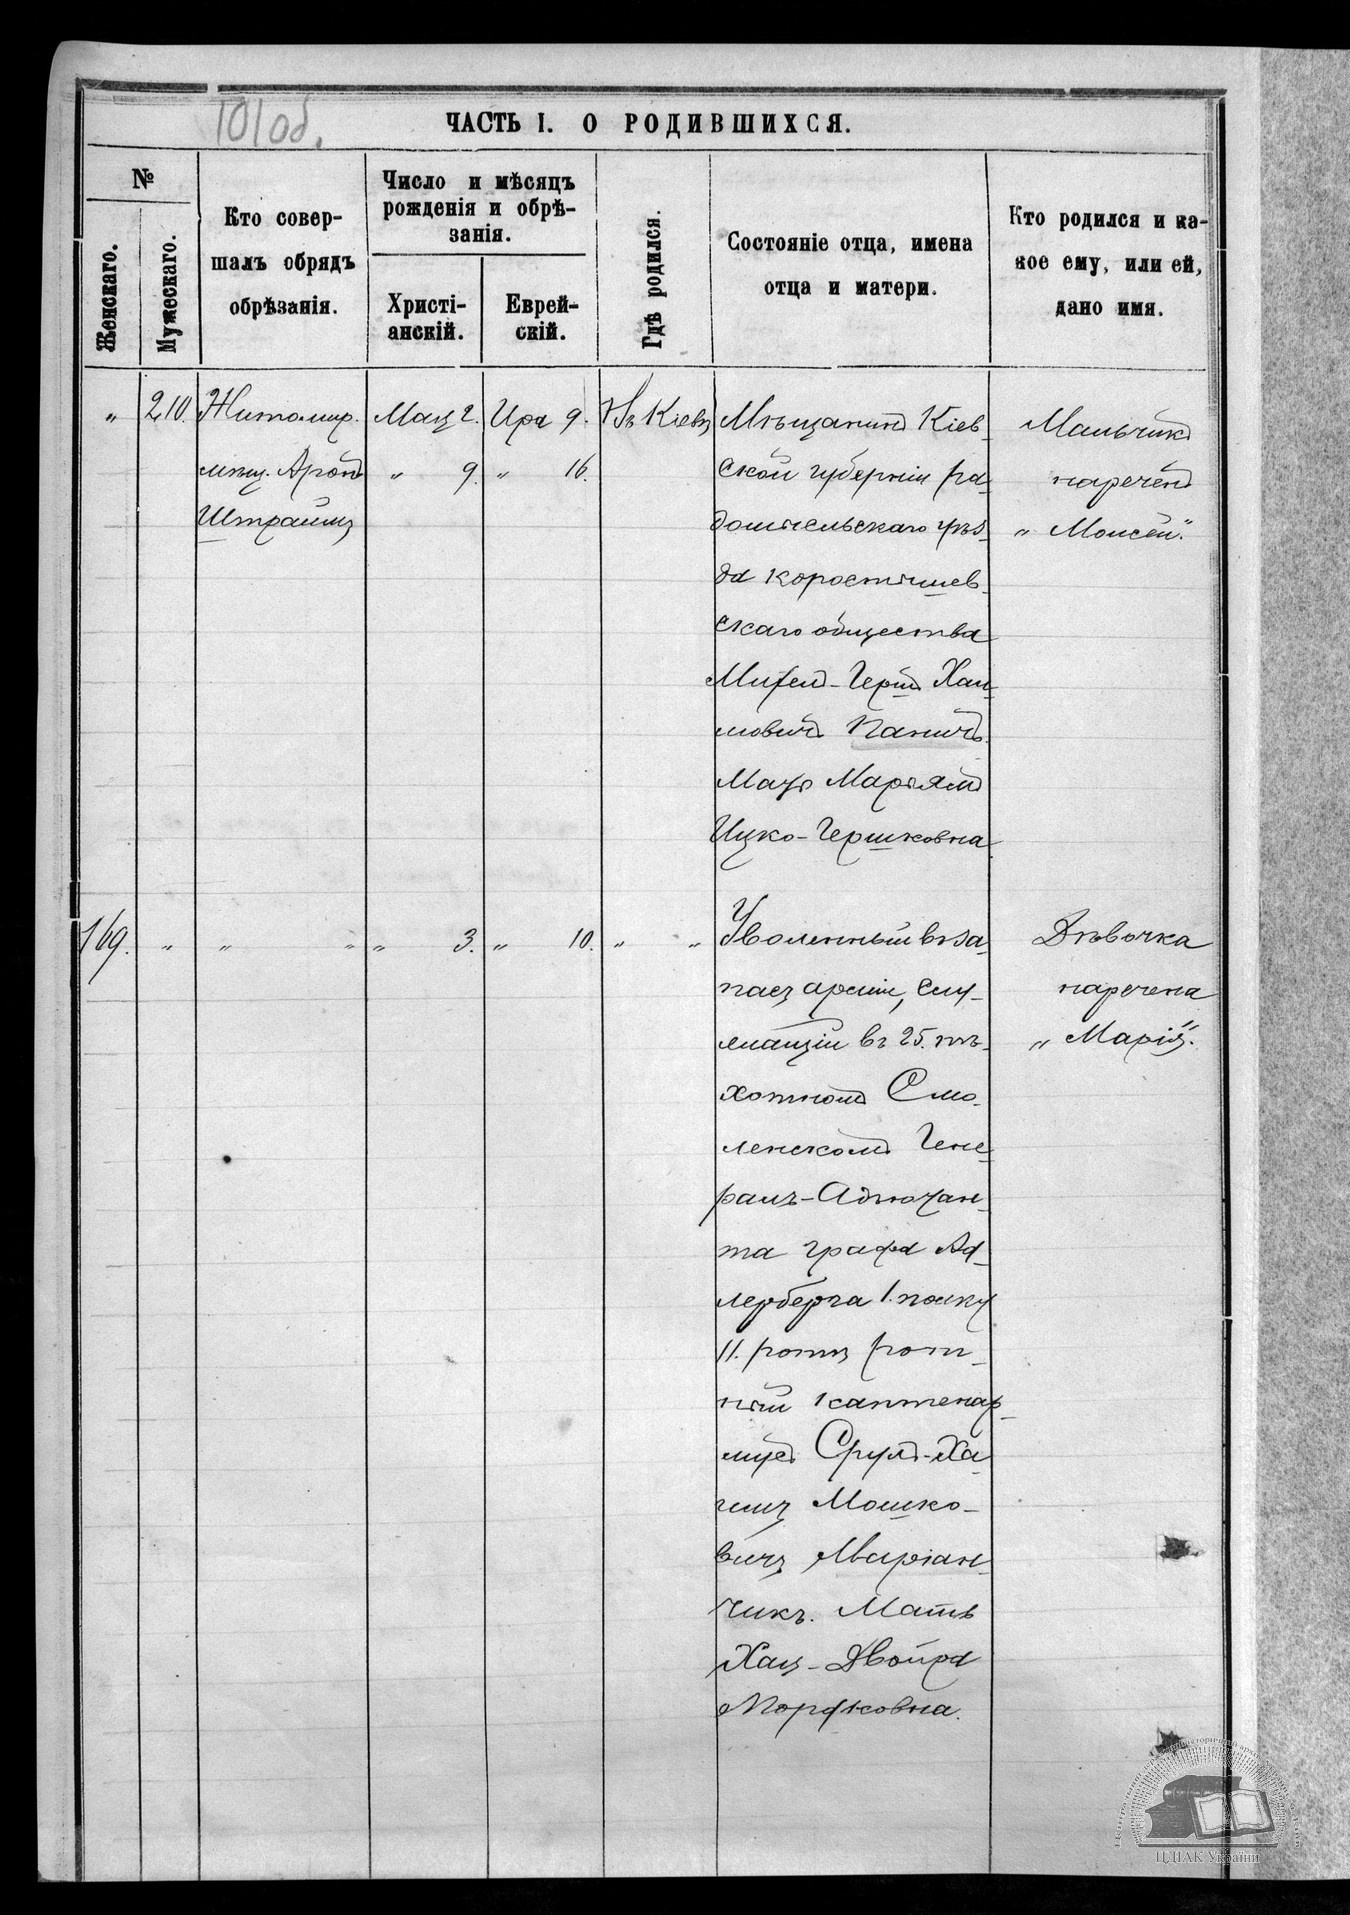 101об.
ЧАСТЬ I. О РОДИВШИХСЯ.
№
Женскаго.
Мужескаго.
Кто совер-
шалъ обрядъ
обрѣзанія.
Число и мѣсяцъ
рожденія и обрѣ-
занія.
Христі-
анскій.
Еврей-
скій.
Гдѣ родился.
Состояніе отца, имена
отца и матери.
Кто родился и ка-
кое ему, или ей,
дано имя.
„
210.
Житомир.
мѣщ. Аронъ
Штраймъ
Мая 2.
„ 9.
Ира 9.
„ 16.
Въ Кіевѣ
Мѣщанинъ Кіев-
ской губерніи ра-
домысльскаго уѣз-
да коростышев-
скаго общества
Герш Хаи-
мовичъ Паничъ.
Мать Марьямъ
Ицко-Гершковна.
Мальчикъ
нареченъ
„Моисей."
169.
„
„ „
„ 3.
„ 10.
„ „
Уволенный въ за-
пасъ арміи, слу-
жащій въ 25. пѣ-
хотномъ Смо-
ленскомъ Гене-
ралъ-Адъютан-
та графа Ад-
лерберга 1. полку
11. роты рот-
ный каптенар-
мусъ Сруль-Ха-
имъ Мошко-
вичъ Маріан-
чикъ. Мать
Хая-Двойра
Мордковна.
Дѣвочка
наречена
„Марія".
ЦДІАК України